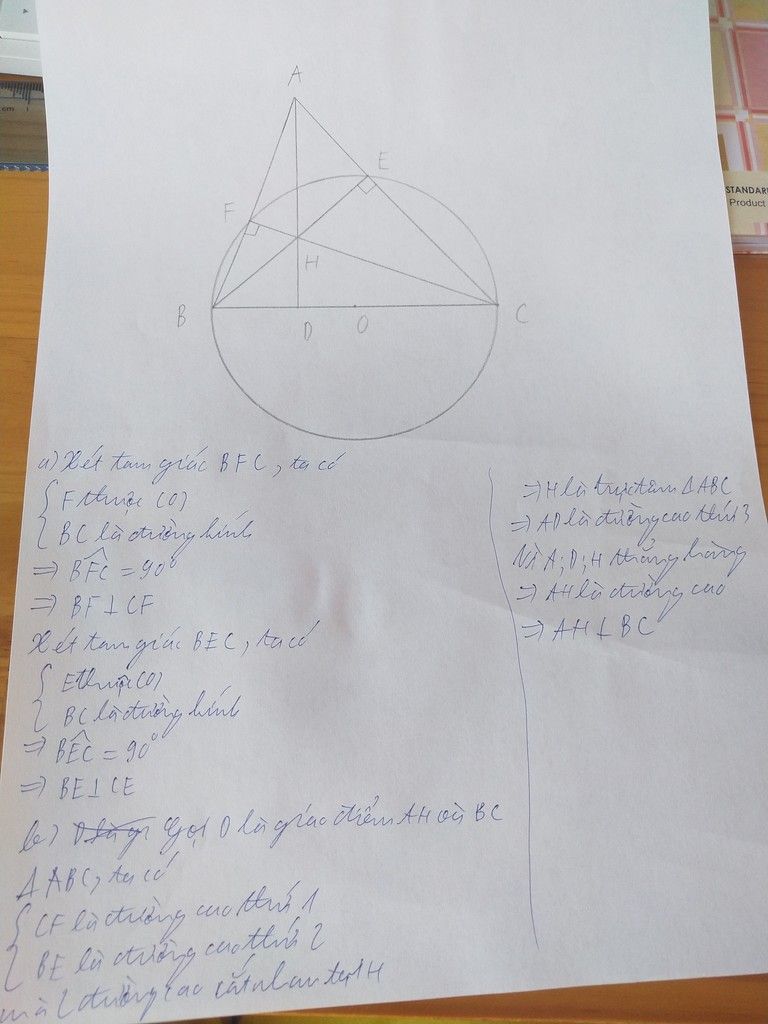 cm
STANDARD
Product
A
E
F
H
B
D
O
C
a) Xét tam giác BFC, ta có
{ F thuộc (O)
BC là đường kính
=> BFC = 90°
=> BF ⊥ CF
Xét tam giác BEC, ta có
{ E thuộc (O)
BC là đường kính
=> BEC = 90°
=> BE ⊥ CE
b) Gọi D là giao điểm AH và BC
Δ ABC, ta có
{ CF là đường cao thứ 1
BE là đường cao thứ 2
mà 2 đường cao cắt nhau tại H
=> H là trực tâm Δ ABC
=> AD là đường cao thứ 3
Vì A; D; H thẳng hàng
=> AH là đường cao
=> AH ⊥ BC